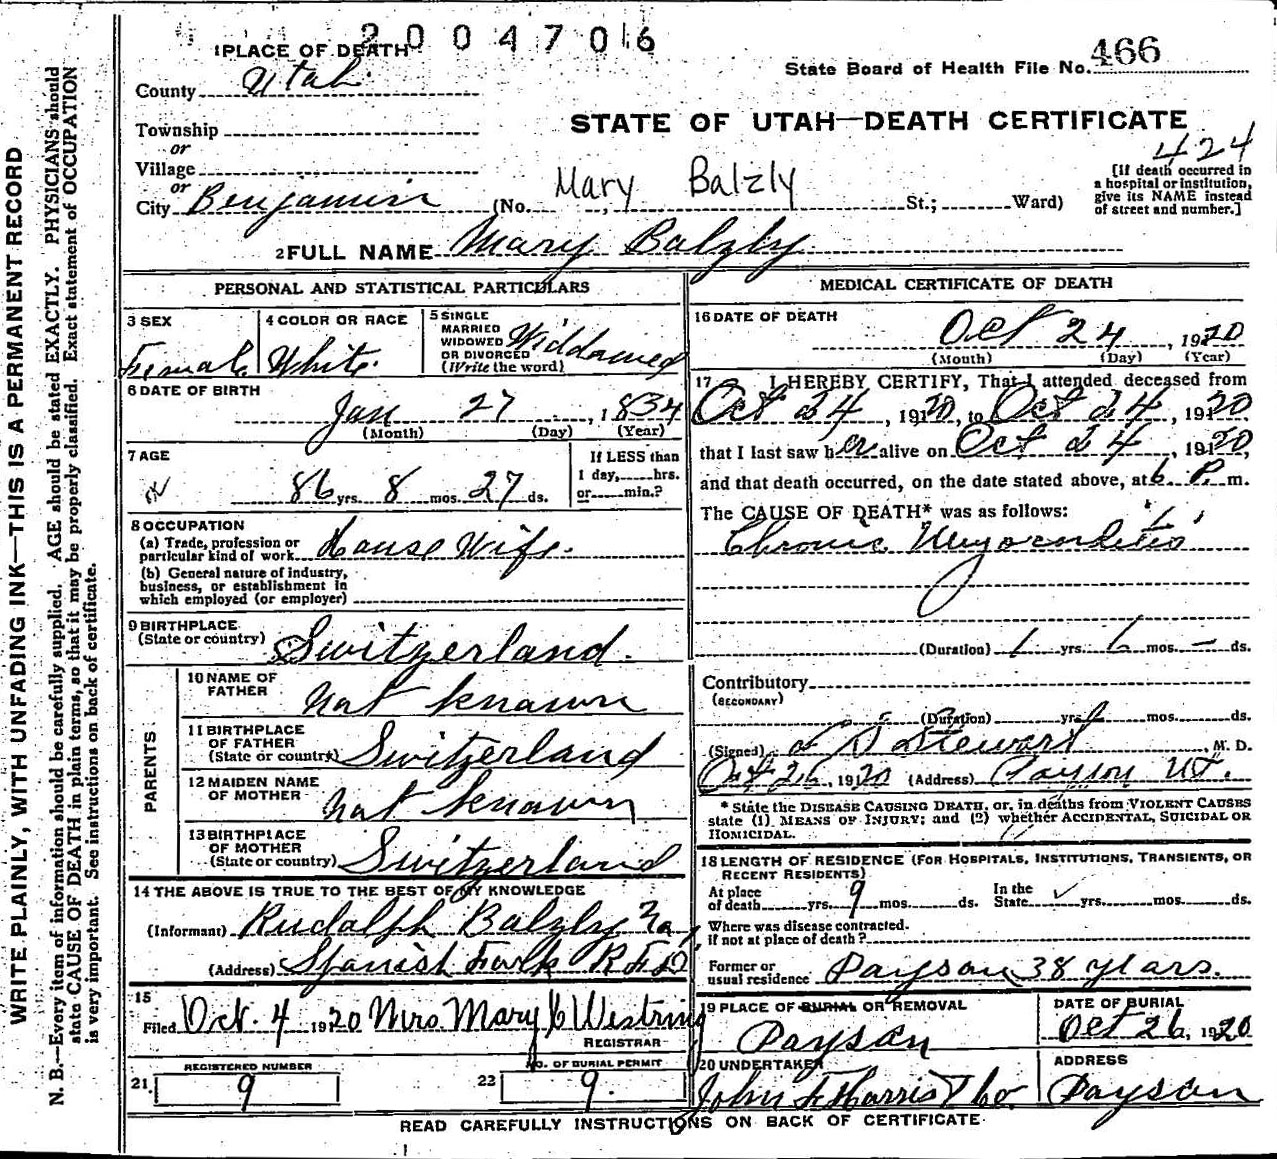 2004706
1 PLACE OF DEATH
State Board of Health File No. 466
County Utah
STATE OF UTAH—DEATH CERTIFICATE
Township
or
424
Village
or
[If death occurred in
a hospital or institution,
give its NAME instead
of street and number.]
City Benjamin (No. Mary Balzly St.; Ward)
2 FULL NAME Mary Balzly
PERSONAL AND STATISTICAL PARTICULARS
3 SEX Female
4 COLOR OR RACE White
5 SINGLE
MARRIED
WIDOWED
OR DIVORCED
(Write the word) Widdowed
6 DATE OF BIRTH
Jan 27, 1834
(Month) (Day) (Year)
7 AGE
86 yrs. 8 mos. 27 ds.
If LESS than
1 day, hrs.
or min.?
8 OCCUPATION
(a) Trade, profession or
particular kind of work House Wife.
(b) General nature of industry,
business, or establishment in
which employed (or employer)
9 BIRTHPLACE
(State or country) Switzerland.
PARENTS
10 NAME OF
FATHER Not known
11 BIRTHPLACE
OF FATHER
(State or country) Switzerland
12 MAIDEN NAME
OF MOTHER Not known
13 BIRTHPLACE
OF MOTHER
(State or country) Switzerland
14 THE ABOVE IS TRUE TO THE BEST OF MY KNOWLEDGE
(Informant) Rudolph Balzly
(Address) Spanish Fork R F D.
15
Filed Oct. 4 1920 Mrs. Mary E Westring
REGISTRAR
21. REGISTERED NUMBER
9
22 NO. OF BURIAL PERMIT
9.
MEDICAL CERTIFICATE OF DEATH
16 DATE OF DEATH
Oct 24, 1920
(Month) (Day) (Year)
17 I HEREBY CERTIFY, That I attended deceased from
Oct 24, 1920, to Oct 24, 1920
that I last saw her alive on Oct 24, 1920,
and that death occurred, on the date stated above, at 6 P. m.
The CAUSE OF DEATH* was as follows:
Chronic Myocarditis
(Duration) 1 yrs. 6 mos. — ds.
Contributory
(SECONDARY)
(Duration) yrs. mos. ds.
(Signed) Stewart, M. D.
Oct 26, 1920 (Address) Payson Ut.
* State the DISEASE CAUSING DEATH, or, in deaths from VIOLENT CAUSES
state (1) MEANS OF INJURY; and (2) whether ACCIDENTAL, SUICIDAL OR
HOMICIDAL.
18 LENGTH OF RESIDENCE (FOR HOSPITALS, INSTITUTIONS, TRANSIENTS, OR
RECENT RESIDENTS)
At place
of death yrs. 9 mos. ds. In the
State yrs. mos. ds.
Where was disease contracted.
if not at place of death?
Former or
usual residence Payson 38 years.
19 PLACE OF BURIAL OR REMOVAL
Payson
DATE OF BURIAL
Oct 26, 1920
20 UNDERTAKER
John F Harris & Co
ADDRESS
Payson
READ CAREFULLY INSTRUCTIONS ON BACK OF CERTIFICATE
WRITE PLAINLY, WITH UNFADING INK—THIS IS A PERMANENT RECORD
N. B.—Every item of information should be carefully supplied. AGE should be stated EXACTLY. PHYSICIANS should
state CAUSE OF DEATH in plain terms, so that it may be properly classified. Exact statement of OCCUPATION
is very important. See instructions on back of certificate.